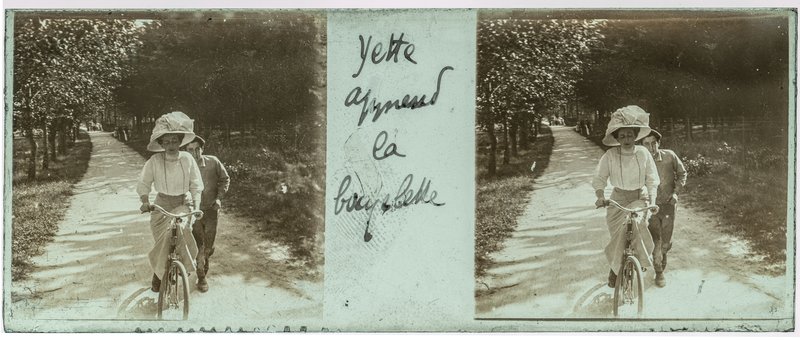 Yette
apprend
la
bicyclette